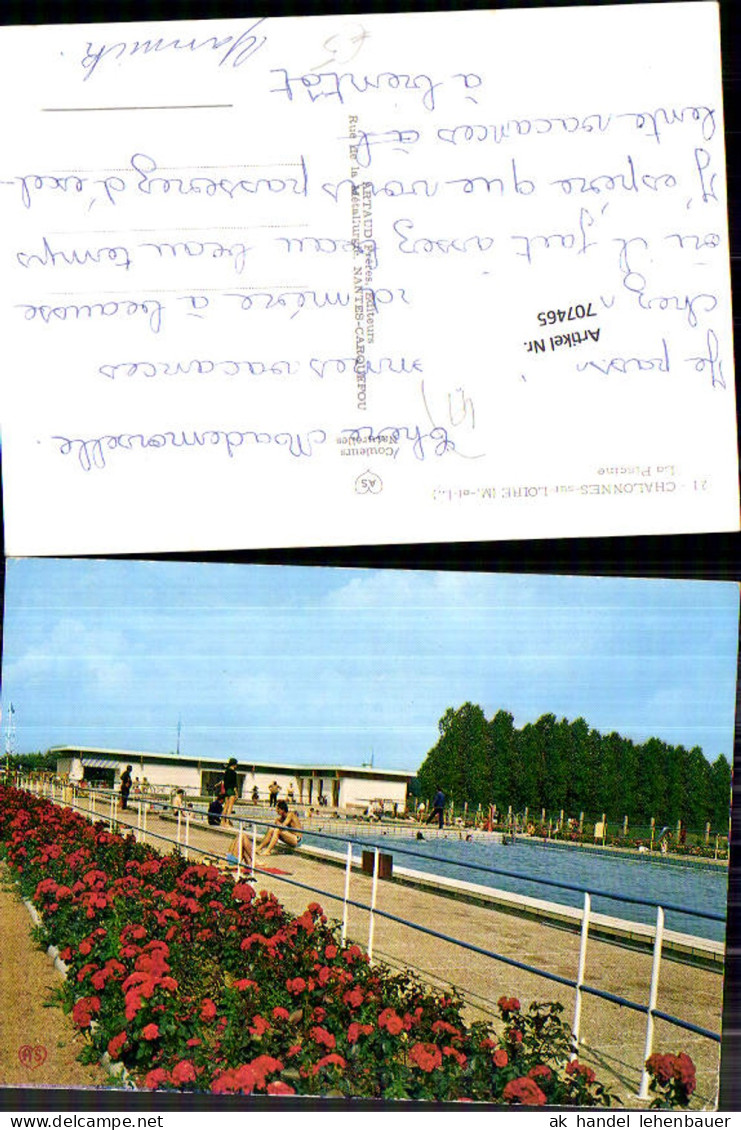 21 - CHALONNES-sur-LOIRE (M.-et-L.)
La Piscine
AS
Couleurs
Naturelles
ARTAUD Frères, Editeurs
Rue de la Métallurgie NANTES-CARQUEFOU
Chère Mademoiselle.
Je passe
vacances
chez
à beausse
où il fait assez beau beau temps
J'espère que vous passerez d'excel-
lente vacances
à bientôt
Yannick.
Artikel Nr.
707465
AS
ak handel lehenbauer